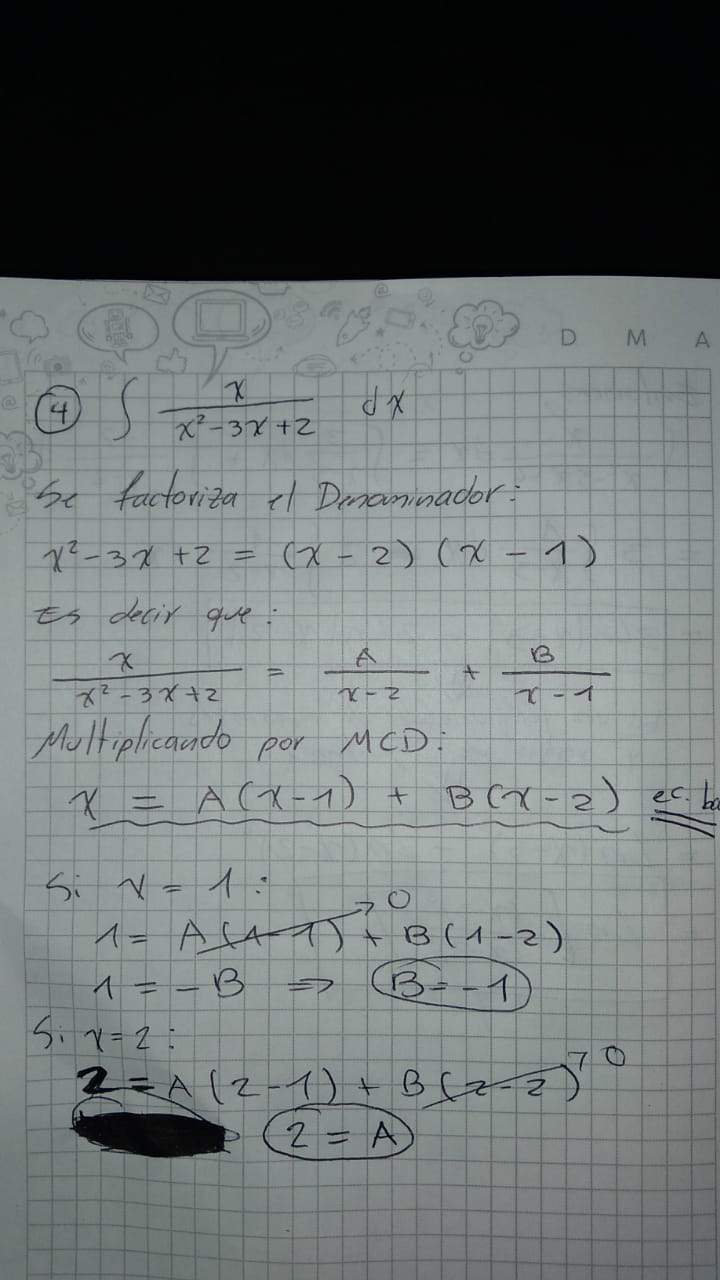 D M A
④ ∫ x/(x²-3x+2) dx
Se factoriza el Denominador:
x²-3x+2 = (x-2)(x-1)
Es decir que:
x/(x²-3x+2) = A/(x-2) + B/(x-1)
Multiplicando por MCD:
x = A(x-1) + B(x-2) ec. ba
Si x = 1:
1 = A(1-1) → 0 + B(1-2)
1 = -B ⇒ B = -1
Si x=2:
2 = A(2-1) + B(2-2) → 0
2 = A